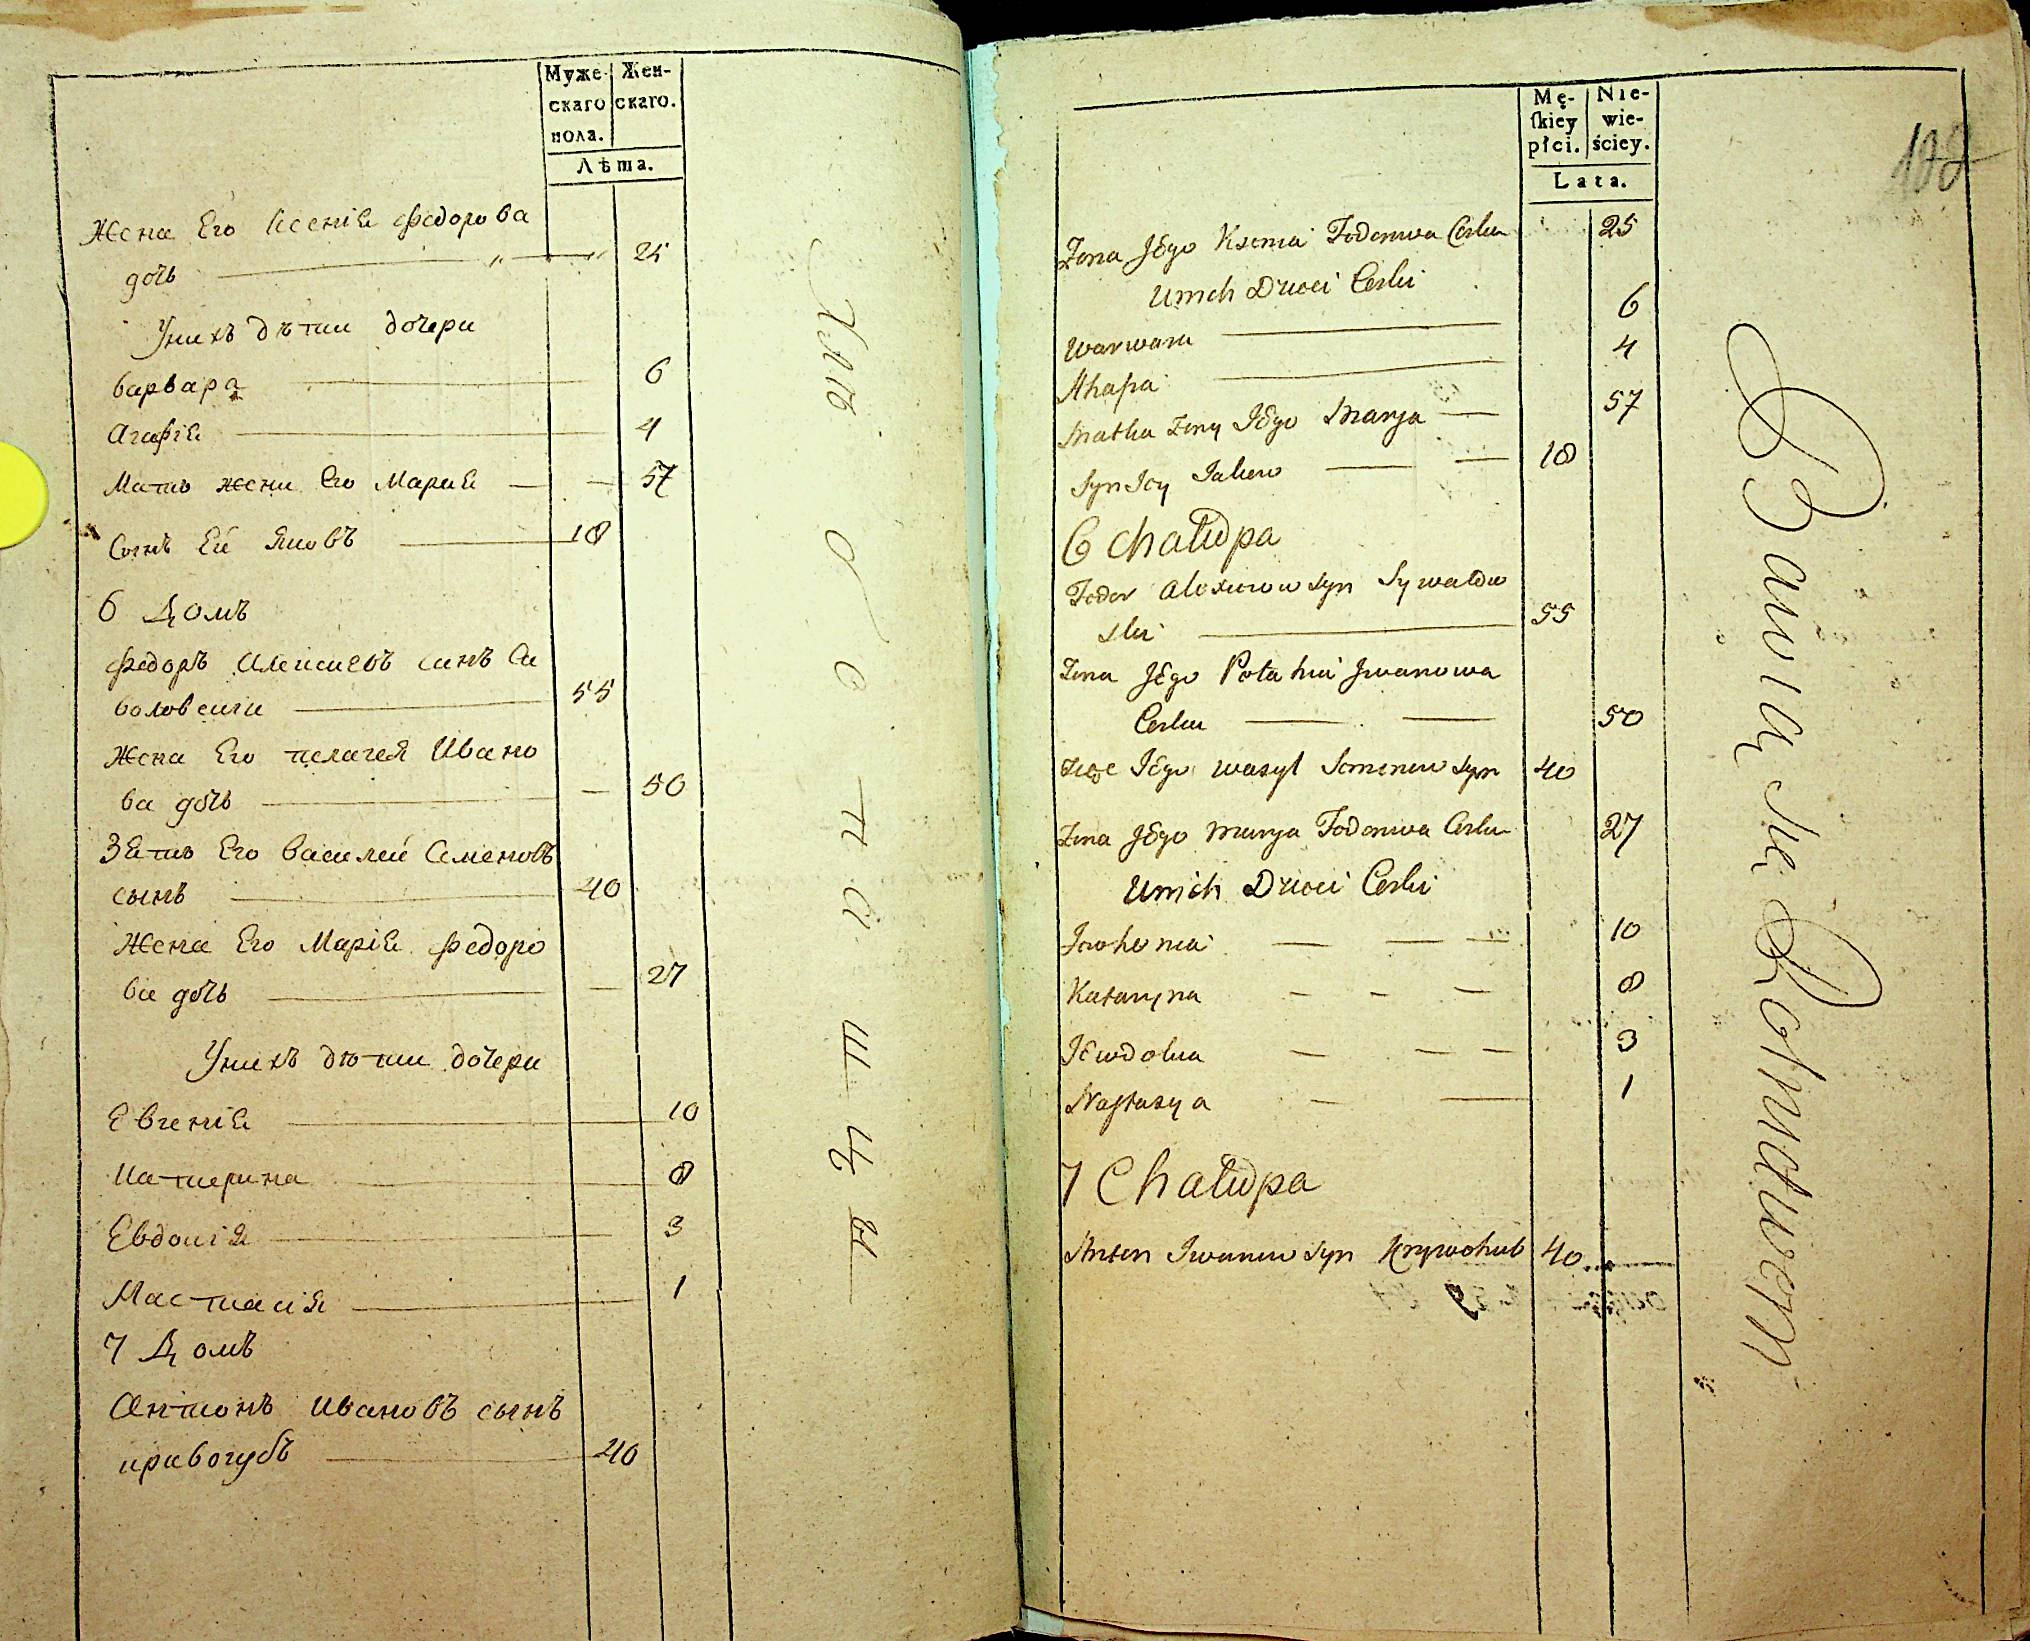 Муже-
скаго
пола.
Жен-
скаго.
Лѣта.
Жена Его Ксенія Федорова
дочь 25
Унихъ дѣти дочери
варвара 6
Агафія 4
Мать жени Его Мария 57
Сынъ Ей Яковъ 18
6 Домъ
Федоръ Алексиевъ синъ Си
воловскги 55
Жена Его пелагея Ивано
ва дочь 50
Зять Его Василей Семеновъ
сынъ 40
Жена Его Марія Федоро
ва дочь 27
Унихъ дѣти дочери
Евгенія 10
Катерина 8
Евдокія 3
Настасія 1
7 Домъ
Антонъ Ивановъ сынъ
кривогубъ 40
Хлѣбопашцы
Mę-
skiey
płci.
Nie-
wie-
ściey.
Lata.
Zona Jego Ksenia Fodorowa Corka 25
Unich Dzieci Corki
Warwara 6
Ahapa 4
Matka Zony Jego Marya 57
Syn Jey Jakow 18
6 Chałupa
Fodor Alexiiow Syn Sywałow
ski 55
Zona Jego Potahia Jwanowa
Corka 50
Zięc Jego Wasyl Semenow Syn 40
Zona Jego Marya Fodorowa Corka 27
Unich Dzieci Corki
Jewhenia 10
Kataryna 8
Jewdokia 3
Nastazya 1
7 Chałupa
Anton Jwanow Syn Krywohub 40
Bawią się Rolnictwem